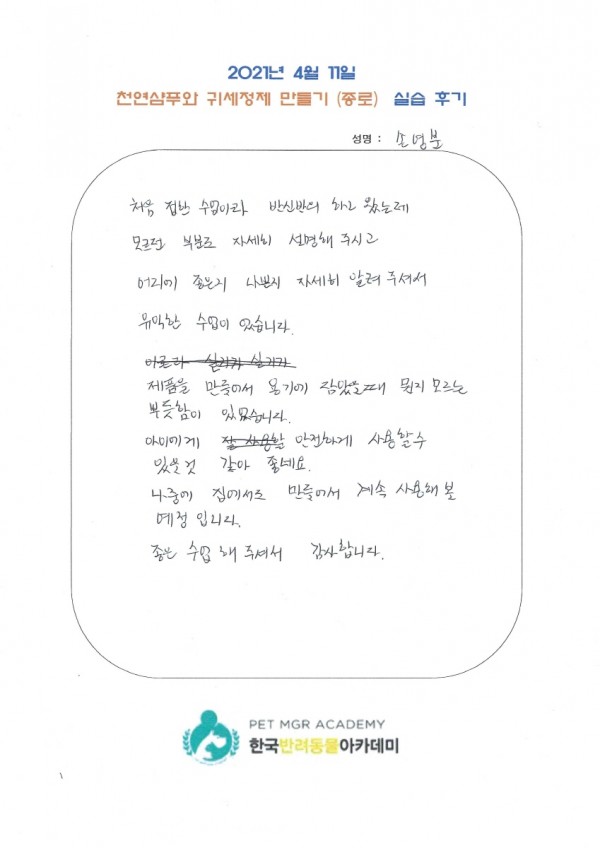 2021년 4월 11일
천연샴푸와 귀세정제 만들기 (종로) 실습 후기
성명 : 손영분
처음 접한 수업이라 반신반의 하고 왔는데
모르던 부분도 자세히 설명해 주시고
어디에 좋은지 나쁜지 자세히 알려 주셔서
유익한 수업이 였습니다.
제품을 만들어서 용기에 담았을때 뭔지 모르는
뿌듯함이 있었습니다.
아이에게 잘 사용할 안전하게 사용할수
있을것 같아 좋네요.
나중에 집에서도 만들어서 계속 사용해 볼
예정 입니다.
좋은 수업 해 주셔서 감사합니다.
PET MGR ACADEMY
한국반려동물아카데미